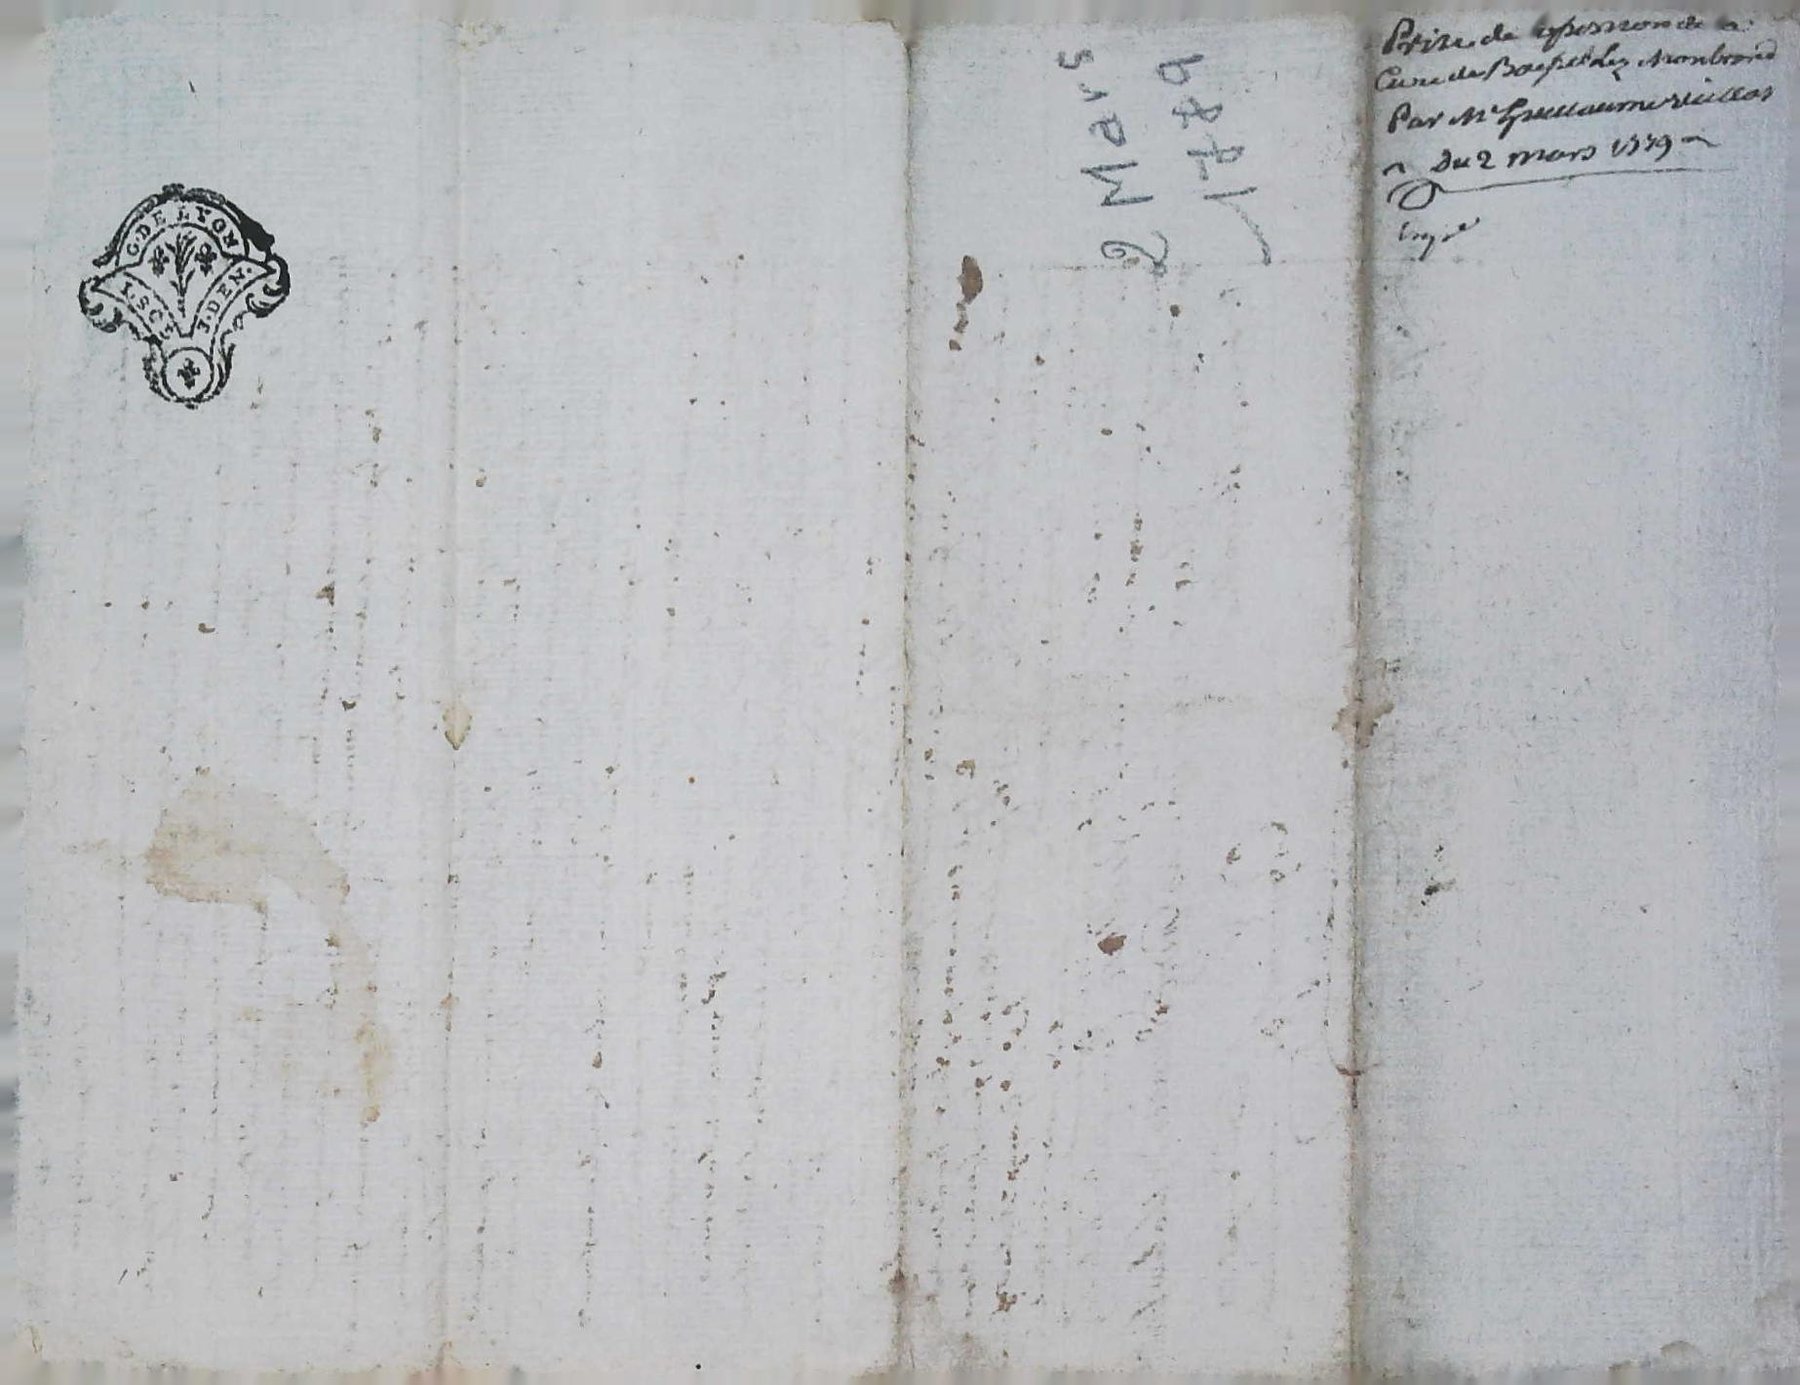 G. DE LYON
1. SOL 4. DEN.
2 Mars
1779
Prise de possession de la
Cure de Boisset Les Montbrond
Par Mr Guillaume
Du 2 mars 1779